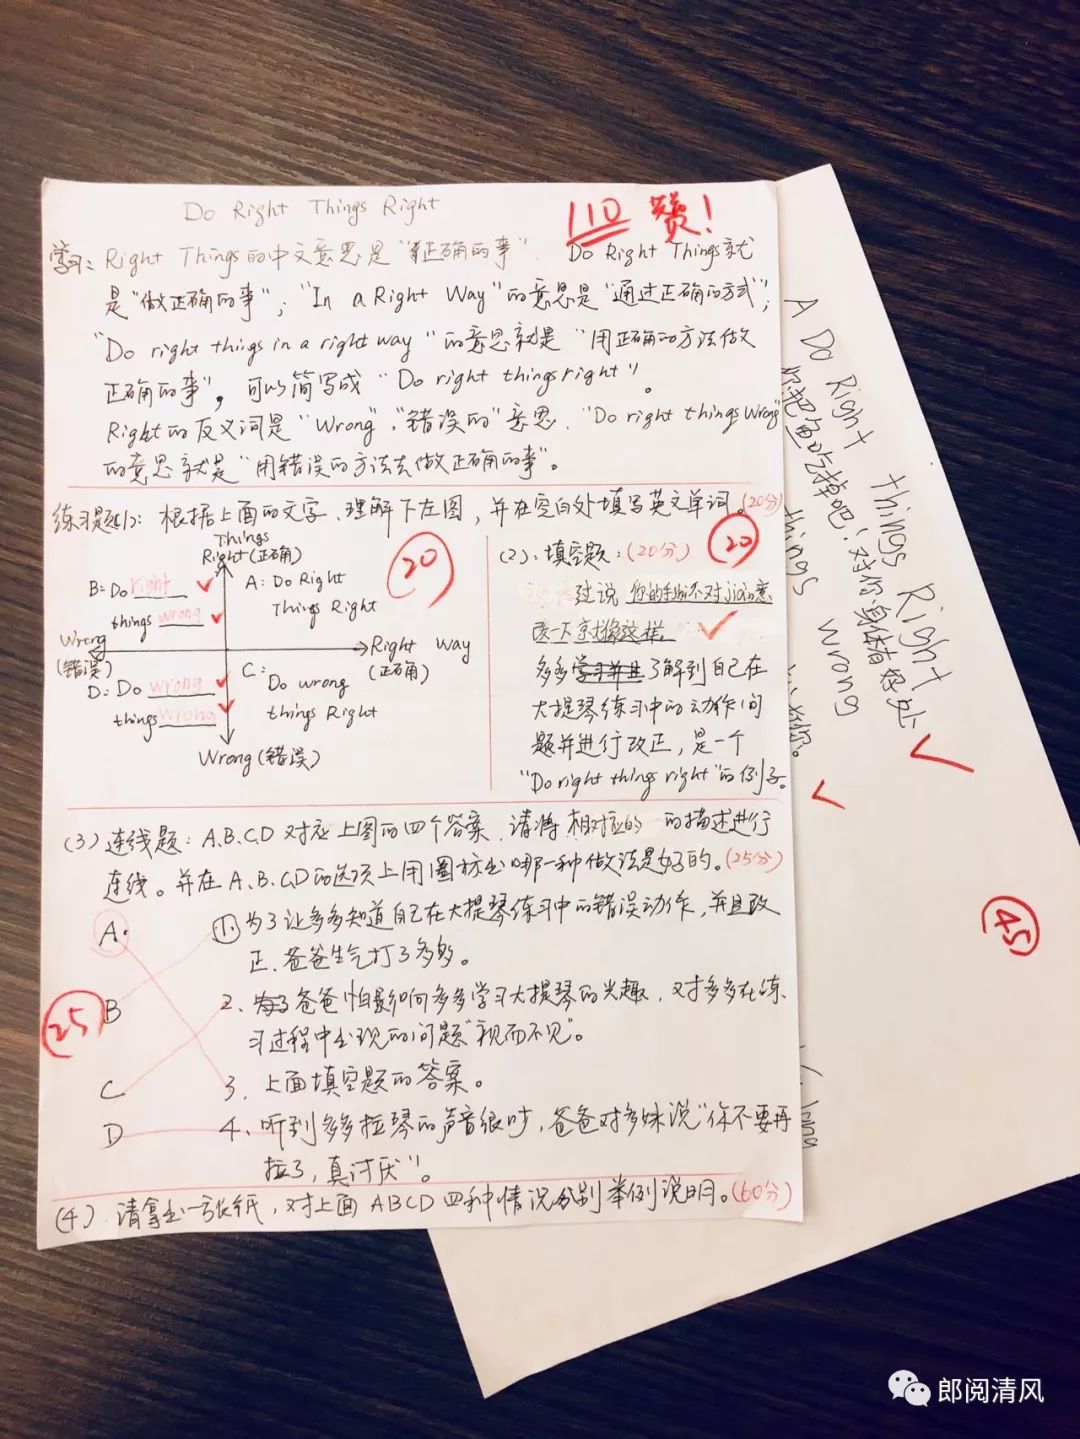 Do Right Things Right
110 赞!
学习: Right Things的中文意思是"正确的事". Do Right Things就
是"做正确的事"; "In a Right Way"的意思是"通过正确的方式";
"Do right things in a right way"的意思就是"用正确的方法做
正确的事", 可以简写成"Do right things right"。
Right的反义词是"Wrong","错误的"意思."Do right things Wrong"
的意思就是"用错误的方法去做正确的事"。
练习题(1): 根据上面的文字、理解下左图, 并在空白处填写英文单词。(20分)
Things
Right(正确)
20
B: Do right
things wrong
A: Do Right
Things Right
Wrong
(错误)
Right Way
(正确)
D: Do wrong
things wrong
C:
Do wrong
things Right
Wrong(错误)
(2)、填空题:(20分)
20
过说 你的手指不对
改一下 就像这样.
多多学习并且了解到自己在
大提琴练习中的动作问
题并进行改正, 是一个
"Do right thing right"的例子。
(3) 连线题: A.B.C.D 对应上图的四个答案、请将 相对应的 的描述进行
连线。并在A、B、C、D的选项上用圈标出哪一种做法是好的。(25分)
A.
B
C
D
25
1. 为了让多多知道自己在大提琴练习中的错误动作, 并且改
正、爸爸生气打了多多。
2、爸爸怕影响多多学习大提琴的兴趣, 对多多在练
习过程中出现的问题"视而不见"。
3、上面填空题的答案。
4、听到多多拉琴的声音很吵, 爸爸对多妹说"你不要再
拉了, 真讨厌"。
(4)、请拿出一张纸, 对上面ABCD四种情况分别举例说明。(60分)
A Do Right things Right
你把鱼吃掉吧!对你身体有好处
things wrong
45
郎阅清风